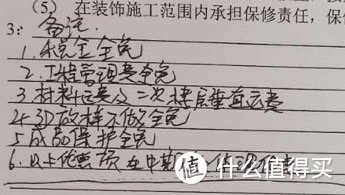 (5) 在装饰施工范围内承担保修责任，保
3: 备注:
1. 税金全免
2. 工程管理费全免
3. 材料运费及二次楼层垂直运费
4. 3D放样不做全免
5. 成品保护全免
6. 以上优惠项在中期
值 什么值得买